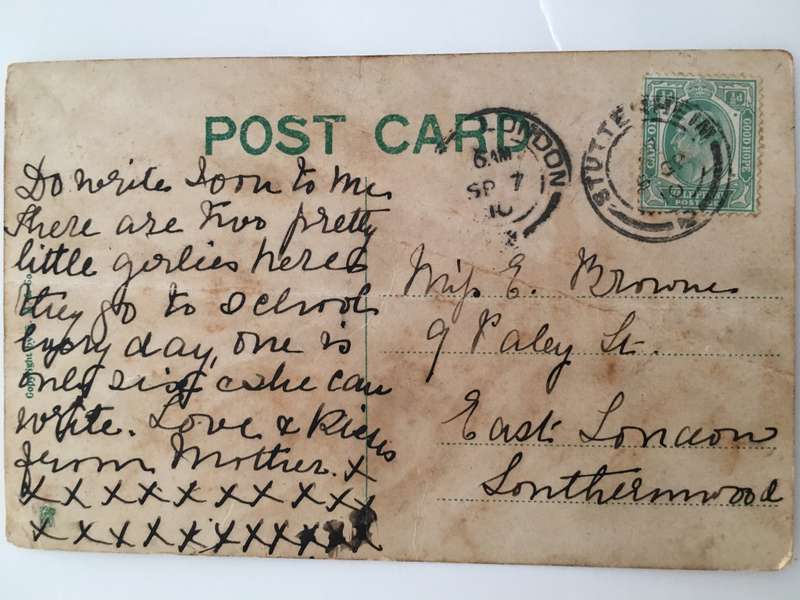 POST CARD
Do write soon to Me
There are two pretty
little girlies here
they go to School
Every day, one is
only six & she can
write. Love & Kisses
from Mother. X
X X X X X X X X X X
X X X X X X X X X X X
Miss E. Browne
9 Paley St.
East London
Southernwood
LONDON
6 AM
SP 7
10
STUTTERHEIM
GOOD HOPE
POST
Copyright